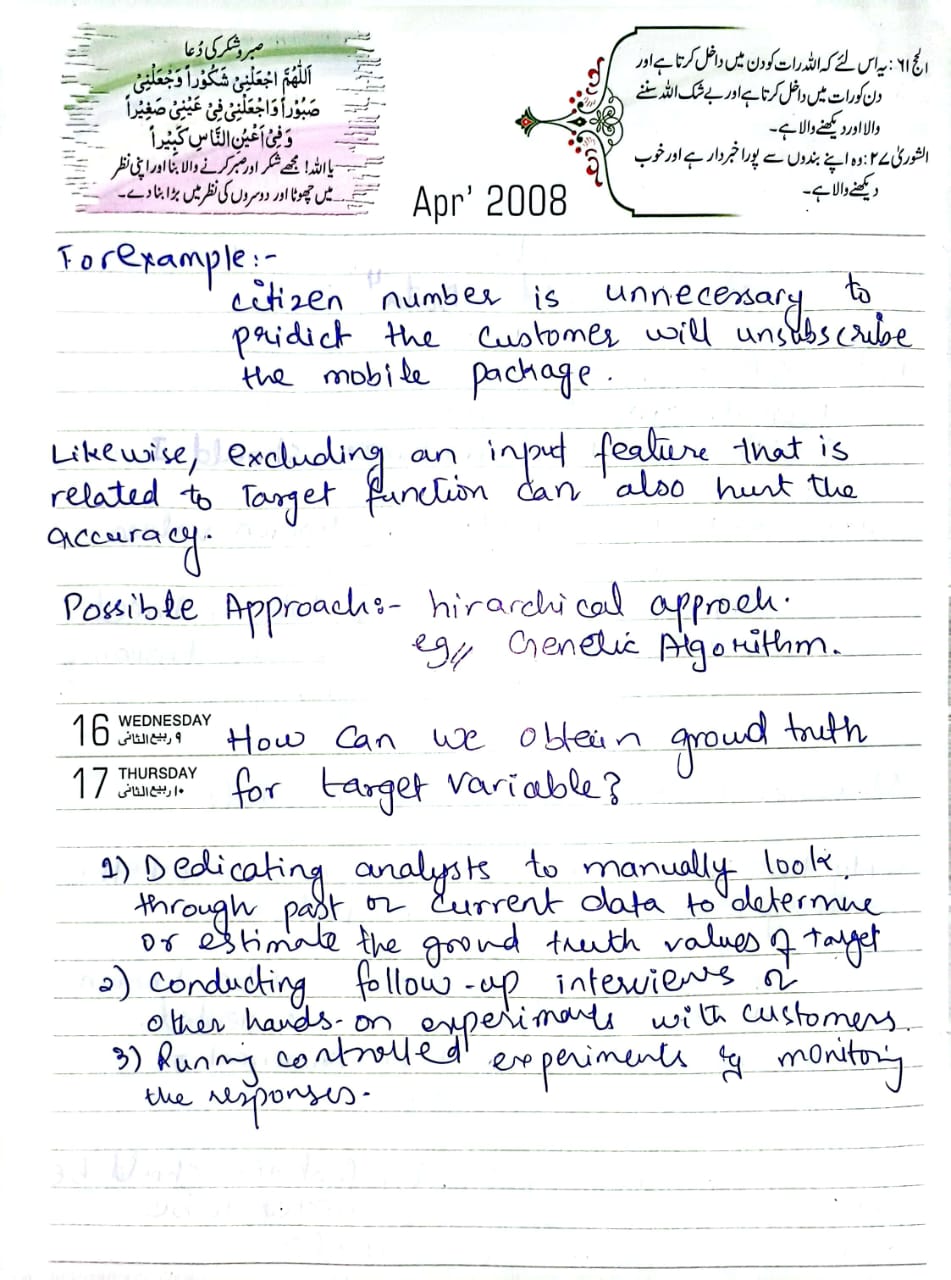 صبر و شکر کی دُعا
اَللّٰهُمَّ اجْعَلْنِیْ شَكُوْراً وَّجْعَلْنِیْ
صَبُوْراً وَاجْعَلْنِیْ فِیْ عَیْنِیْ صَغِیْراً
وَفِیْ اَعْیُنِ النَّاسِ كَبِیْراً
یا اللہ! مجھے شکر اور صبر کرنے والا بنا اور اپنی نظر
میں چھوٹا اور دوسروں کی نظر میں بڑا بنا دے۔
الحج ۶۱: یہ اس لئے کہ اللہ رات کو دن میں داخل کرتا ہے اور
دن کو رات میں داخل کرتا ہے اور بے شک اللہ سننے
والا اور دیکھنے والا ہے۔
الشوریٰ ۲۷: وہ اپنے بندوں سے پورا خبردار ہے اور خوب
دیکھنے والا ہے۔
Apr' 2008
For example:-
citizen number is unnecessary to
pridict the customer will unsubscribe
the mobile package.
Likewise, excluding an input feature that is
related to Target function can also hurt the
accuracy.
Possible Approach:- hirarchical approch.
eg// Genetic Algorithm.
16 WEDNESDAY
۹ ربیع الثانی
How can we obtain groud truth
17 THURSDAY
۱۰ ربیع الثانی
for target variable?
1) Dedicating analysts to manually look
through past or current data to determine
or estimate the groud truth values of target
2) Conducting follow-up interviews or
other hands-on experiments with customers.
3) Runnig controlled experiments & monitorig
the responses.